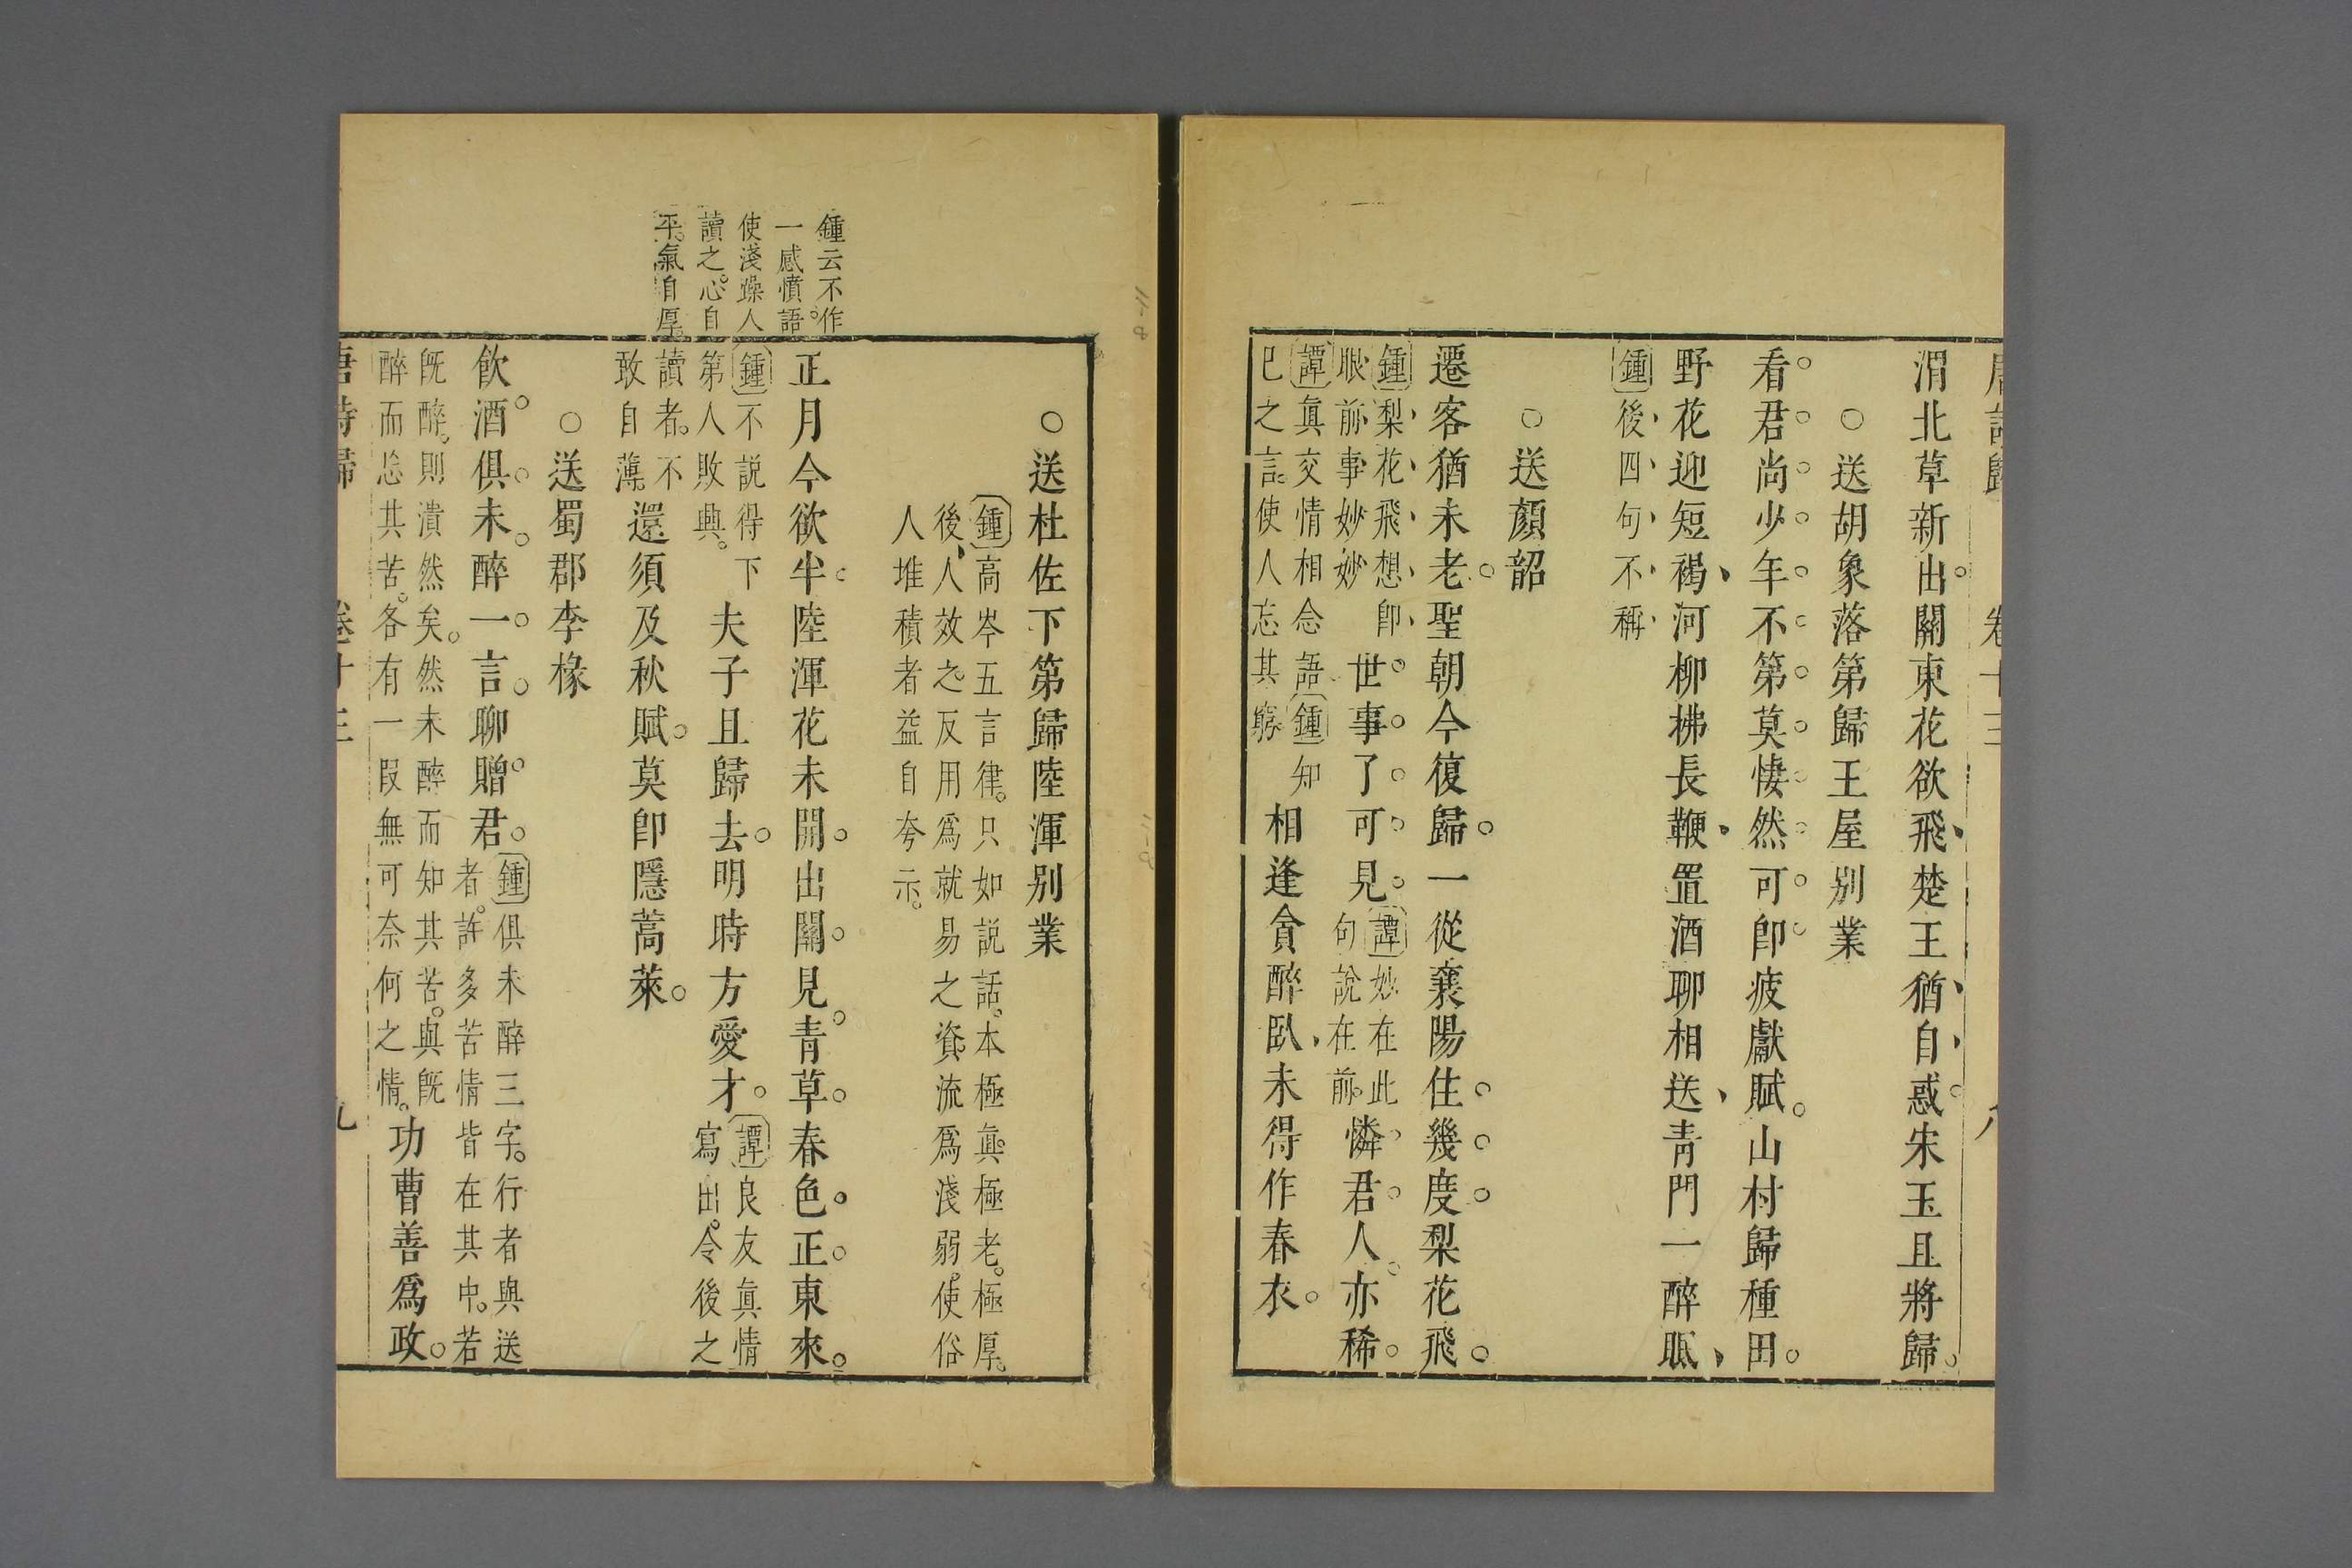 唐詩歸 卷十三 八
渭北草新出關東花欲飛楚王猶自惑宋玉且將歸
○送胡象落第歸王屋别業
看君尚少年不第莫悽然可即疲獻賦山村歸種田
野花迎短褐河柳拂長鞭置酒聊相送青門一醉眠
鍾後四句不稱
○送顏韶
遷客猶未老聖朝今復歸一從襄陽住幾度梨花飛
鍾梨花飛想即
眼前事妙妙
世事了可見
譚妙在此
句說在前
憐君人亦稀
譚眞交情相念語鍾知
已之言使人忘其窮
相逢貪醉臥未得作春衣
○送杜佐下第歸陸渾别業
鍾高岑五言律只如説話本極眞極老極厚
後人效之反用爲就易之資流爲淺弱使俗
人堆積者益自夸示
鍾云不作
一感憤語
使淺躁人
讀之心自
平氣自厚
正月今欲半陸渾花未開出關見青草春色正東來
鍾不説得下
第人敗興
夫子且歸去明時方愛才
譚良友眞情
寫出令後之
讀者不
敢自薄
還須及秋賦莫即隱蒿萊
○送蜀郡李掾
飲酒俱未醉一言聊贈君
鍾俱未醉三字行者與送
者許多苦情皆在其中若
旣醉則潰然矣然未醉而知其苦與旣
醉而忘其苦各有一段無可奈何之情
功曹善爲政
唐詩歸 卷十三 九